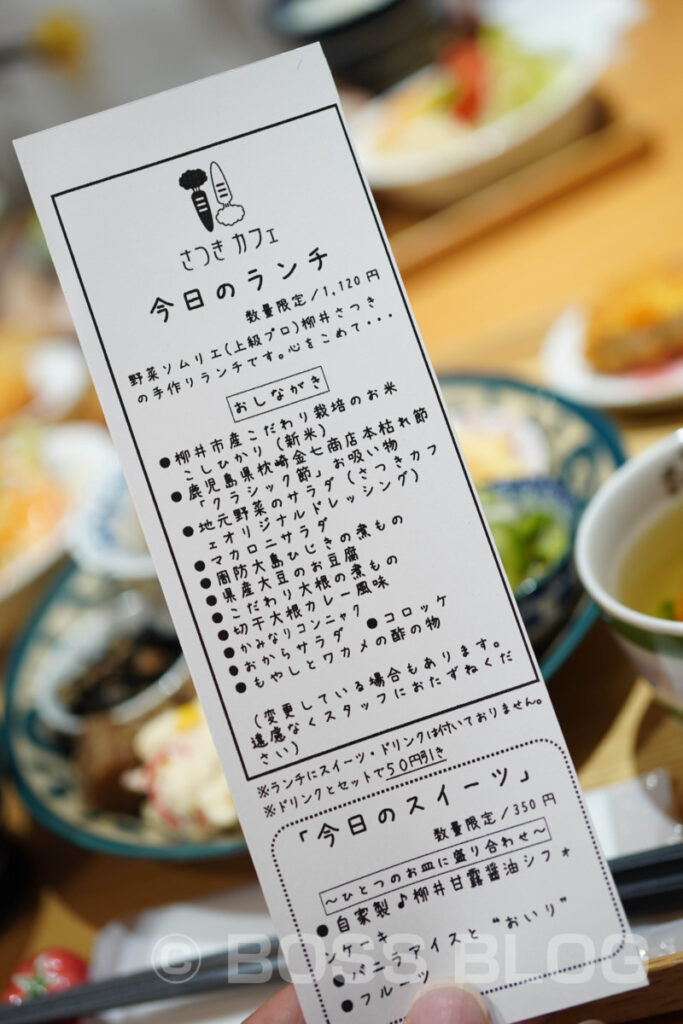 さつきカフェ
今日のランチ
数量限定/1,120円
野菜ソムリエ(上級プロ)柳井さつき
の手作りランチです。心をこめて・・・
おしながき
●柳井市産こだわり栽培のお米
こしひかり(新米)
●鹿児島県枕崎金七商店本枯れ節
「クラシック節」お吸い物
●地元野菜のサラダ(さつきカフ
ェオリジナルドレッシング)
●マカロニサラダ
●周防大島ひじきの煮もの
●県産大豆のお豆腐
●こだわり大根の煮もの
●切干大根カレー風味
●かみなりコンニャク
●おからサラダ ●コロッケ
●もやしとワカメの酢の物
(変更している場合もあります。
遠慮なくスタッフにおたずねくだ
さい)
※ランチにスイーツ・ドリンクは付いておりません。
※ドリンクとセットで50円引き
「今日のスイーツ」
数量限定/350円
~ひとつのお皿に盛り合わせ~
●自家製♪柳井甘露醤油シフォ
ンケーキ
●バニラアイスと "おいり"
●フルーツ
© BOSS BLOG